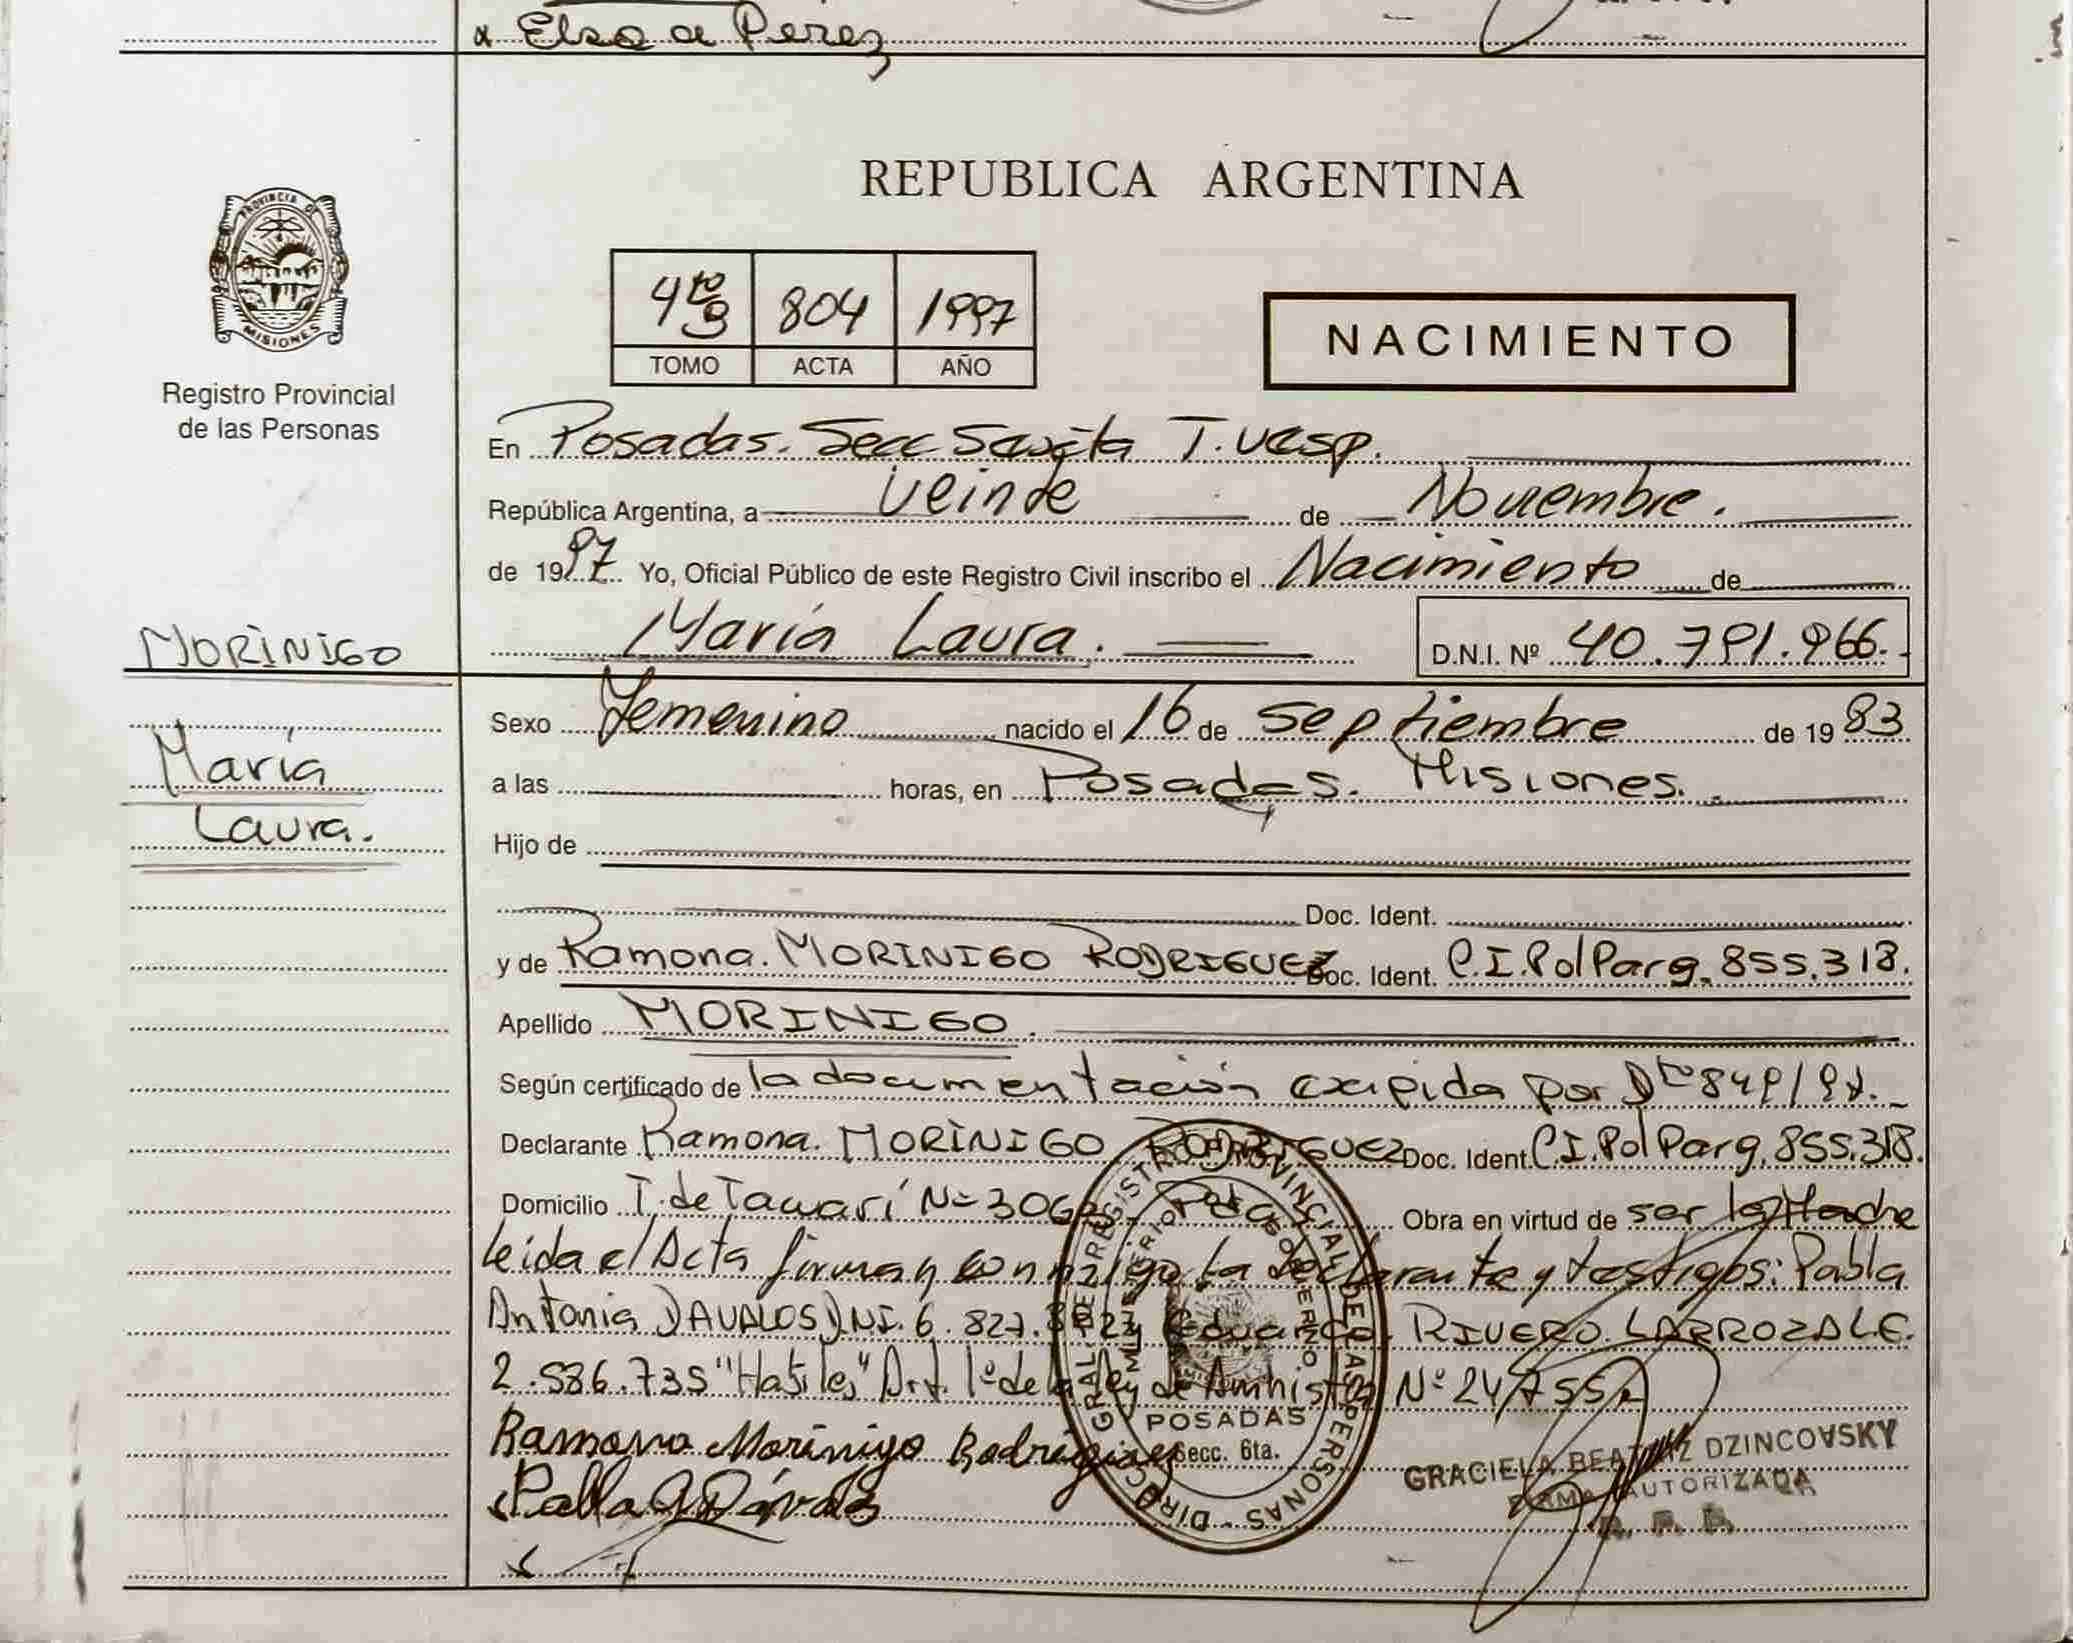 x Elsa a Perez
PROVINCIA DE
MISIONES
Registro Provincial
de las Personas
REPUBLICA ARGENTINA
4to 804 1997
TOMO ACTA AÑO
NACIMIENTO
En Posadas. Secc Sexta T. Vesp.
República Argentina, a veinte de Noviembre.
de 1997 Yo, Oficial Público de este Registro Civil inscribo el Nacimiento de
María Laura. D.N.I. Nº 40.791.966.
MORINIGO
María
Laura.
Sexo Femenino nacido el 16 de Septiembre de 1983
a las horas, en Posadas. Misiones.
Hijo de
Doc. Ident.
y de Ramona. MORINIGO RODRIGUEZ Doc. Ident. C.I.Pol Parg. 855.318.
Apellido MORINIGO.
Según certificado de la documentación expida por Dto 849/97.
Declarante Ramona. MORINIGO RODRIGUEZ Doc. Ident. C.I.Pol Parg. 855.318.
Domicilio T. de Tacuarí Nº Pdas Obra en virtud de ser la Madre
leida el Acta firman conmigo la declarante y testigos: Pabla
Antonia DAVALOS D.N.I. 6.827. y Eduardo RIVERO LARROZA L.E.
2.586.735 "Habiles" Art. 1º de la ley de Amnistia Nº 24755
Ramona Morinigo Rodriguez
Pabla A Dávalos
DIRECC. GRAL. DE REGISTRO PROVINCIAL DE LAS PERSONAS
MINISTERIO DE GOBIERNO
POSADAS
Secc. 6ta.
GRACIELA BEATRIZ DZINCOVSKY
FIRMA AUTORIZADA
R. P. P.